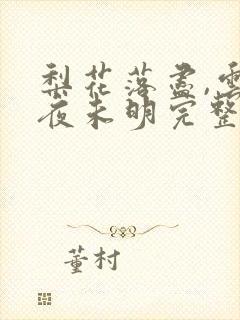 梨花落盡,雲
夜未明完整
董村